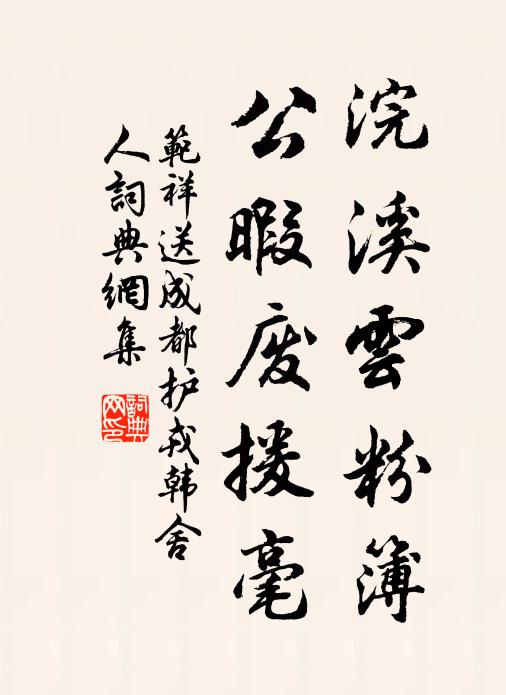 浣溪雲粉簿
公暇废援毫
範祥送成都护戎韩舍
人詞典網集
詞典
网印